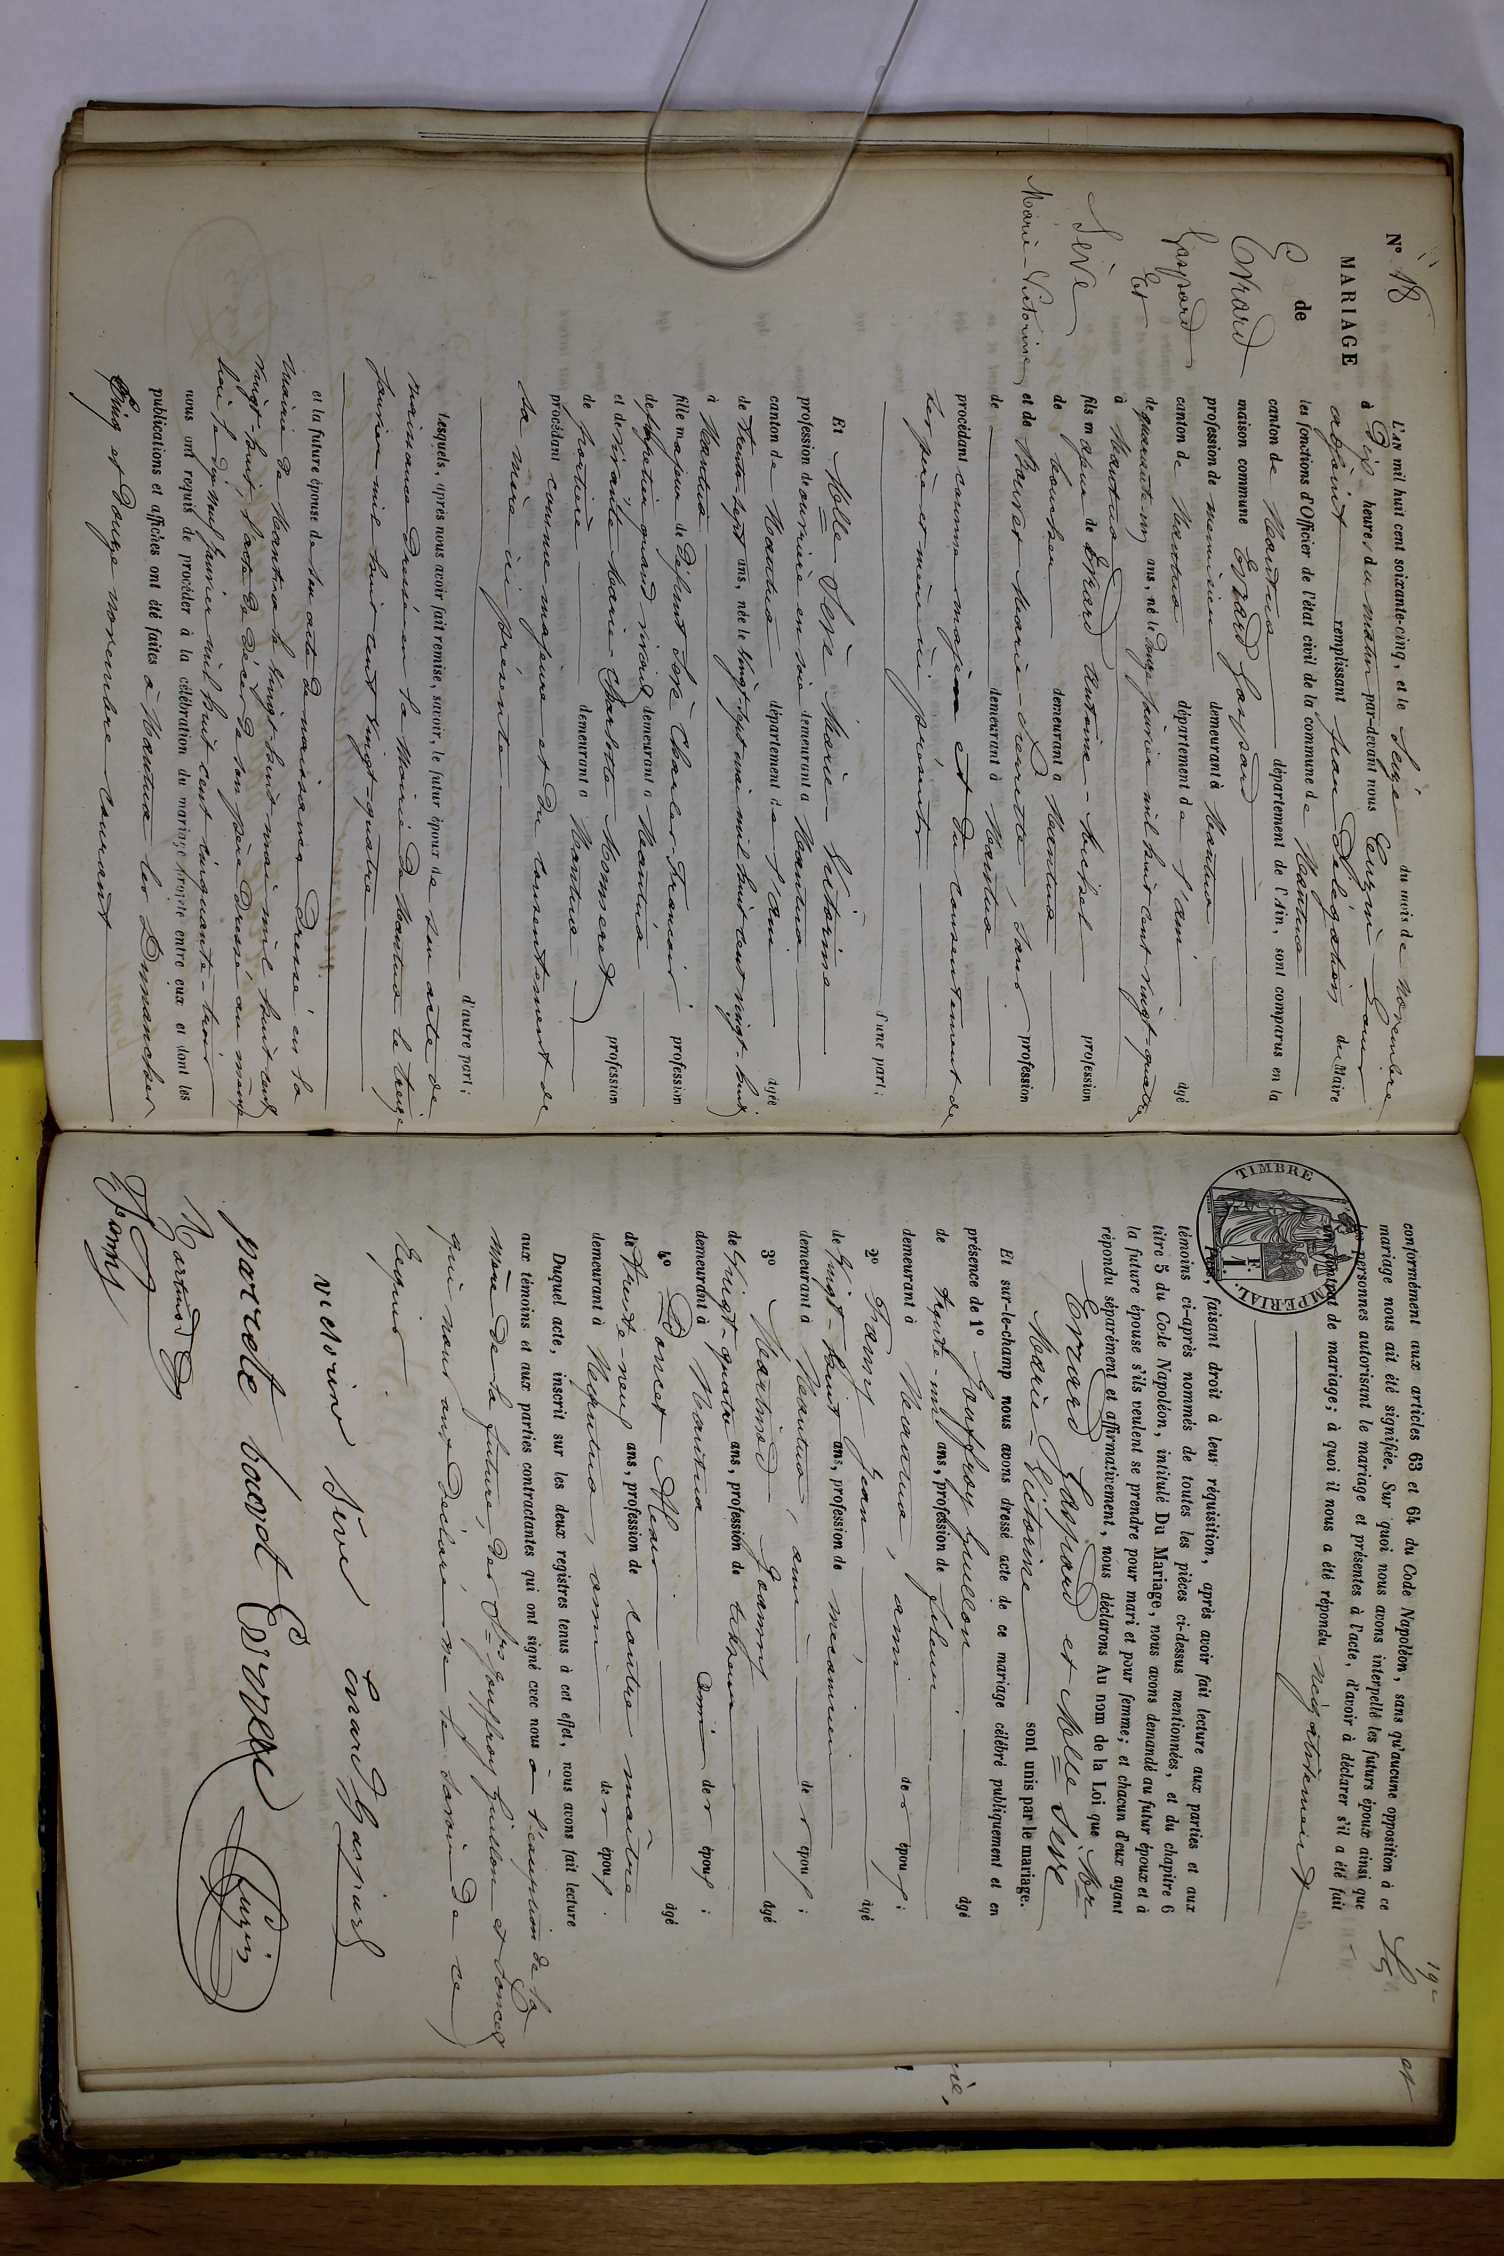 N° 18
MARIAGE
de
Evrard
Gaspard
Et
Sève
Marie-Victorine
L'an mil huit cent soixante-cinq, et le Seize du mois de novembre
à Dix heures du matin par-devant nous
adjoint remplissant par Délégation du Maire
les fonctions d'Officier de l'état civil de la commune de Nantua
canton de Nantua département de l'Ain, sont comparus en la
maison commune Evrard Gaspard
profession de menuisier demeurant à Nantua âgé
canton de Nantua département de l'ain
de quarante un ans, né le Douze février mil huit cent vingt-quatre
à Nantua
fils majeur de Evrard Antoine profession
de boucher demeurant à Nantua
et de Marie Pierrette, sans profession
de demeurant à Nantua
procédant comme majeur et du consentement de
ses père et mère ici présents
d'une part;
Et Melle Sève Marie-Victorine
profession de ouvrière en soie demeurant à Nantua
canton de Nantua département de l'ain âgée
de trente-sept ans, née le vingt-sept mai mil huit cent vingt-huit
à Nantua
fille majeure de Défunt Sève Charles-François profession
de quand vivait demeurant à Nantua
et de vivante Marie-Charlotte Monneret profession
de portière demeurant à Nantua
procédant comme majeure et du consentement de
sa mère ici présente
d'autre part;
Lesquels, après nous avoir fait remise, savoir, le futur époux de son acte de
naissance dressé en la Mairie de Nantua le treize
février mil huit cent vingt-quatre
et la future épouse de son acte de naissance dressé en la
mairie de Nantua le vingt-huit mai mil huit cent
vingt-huit, l'acte de décès de son père dressé au même
lieu le dix neuf janvier mil huit cent cinquante-trois
nous ont requis de procéder à la célébration du mariage projeté entre eux et dont les
publications et affiches ont été faites à Nantua les Dimanches
Cinq et Douze novembre courant
conformément aux articles 63 et 64 du Code Napoléon, sans qu'aucune opposition à ce
mariage nous ait été signifiée. Sur quoi nous avons interpellé les futurs époux ainsi que
les personnes autorisant le mariage et présentes à l'acte, d'avoir à déclarer s'il a été fait
un contrat de mariage; à quoi il nous a été répondu négativement
TIMBRE IMPERIAL.
1 F.
Puis, faisant droit à leur réquisition, après avoir fait lecture aux parties et aux
témoins ci-après nommés de toutes les pièces ci-dessus mentionnées, et du chapitre 6
titre 5 du Code Napoléon, intitulé Du Mariage, nous avons demandé au futur époux et à
la future épouse s'ils veulent se prendre pour mari et pour femme; et chacun d'eux ayant
répondu séparément et affirmativement, nous déclarons Au nom de la Loi que Mr
Evrard Gaspard et Melle Sève
Marie-Victorine sont unis par le mariage.
Et sur-le-champ nous avons dressé acte de ce mariage célébré publiquement et en
présence de 1° Gouffroy Guillon âgé
de trente-un ans, profession de fileur
demeurant à Nantua, ami des époux;
2° Famy Jean âgé
de vingt-huit ans, profession de mecanicien
demeurant à Nantua, ami des époux;
3° Martinod Joanny âgé
de vingt-quatre ans, profession de tisseur
demeurant à Nantua ami des époux;
4° Poncet Alexis âgé
de trente-neuf ans, profession de contre maître
demeurant à Nantua, ami des époux.
Duquel acte, inscrit sur les deux registres tenus à cet effet, nous avons fait lecture
aux témoins et aux parties contractantes qui ont signé avec nous à l'exception de la
mère de la future, des Srs Gouffroy Guillon et Poncet
qui nous ont déclaré ne le savoir de ce
Requis
victorine Sève Evrard Gaspard
Martinod
JFamy